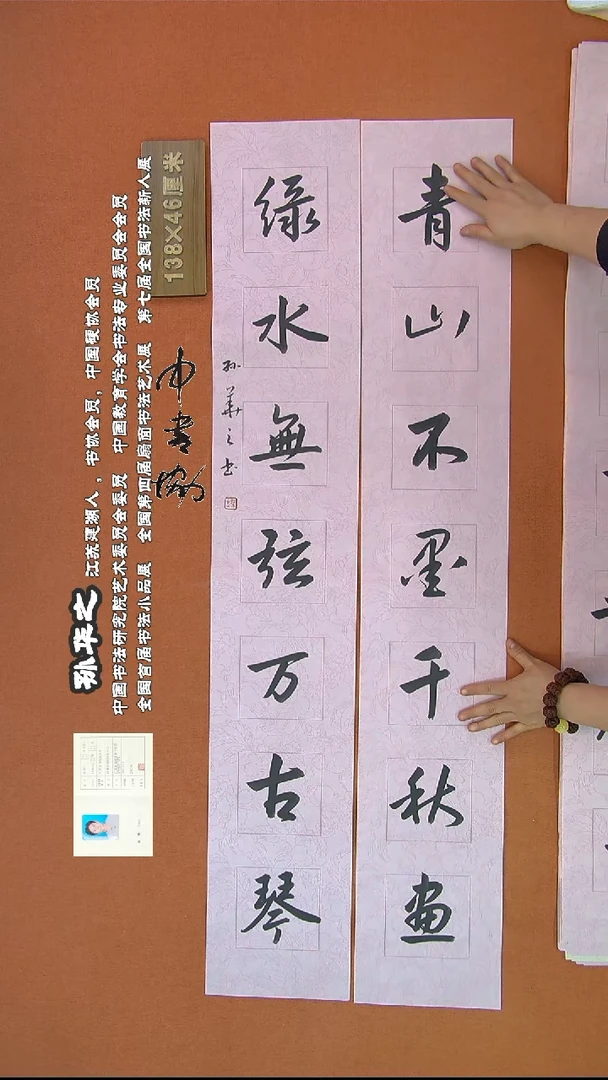 青山不墨千秋畫
绿水無弦万古琴
孙華之书
138×46厘米
中书协
孙华之 江苏建湖人，书协会员，中国硬协会员
中国书法研究院艺术委员会委员 中国教育学会书法专业委员会会员
全国首届书法小品展 全国第四届扇面书法艺术展 第七届全国书法新人展